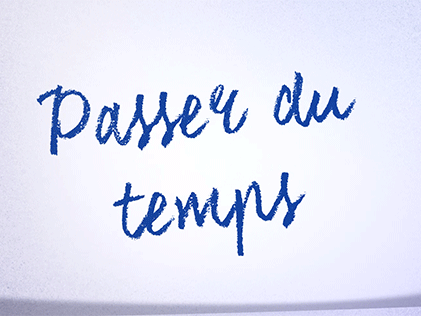 Passer du
temps